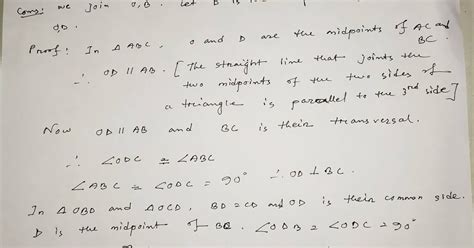 Cons: we join O, B. Let D is
OD.
Proof: In △ABC, O and D are the midpoints of AC and
BC.
∴ OD || AB. [The straight line that joints the
two midpoints of the two sides of
a triangle is parallel to the 3rd side]
Now OD || AB and BC is their transversal.
∴ ∠ODC ≅ ∠ABC
∠ABC ≅ ∠ODC = 90° ∴ OD ⊥ BC.
In △OBD and △OCD, BD = CD and OD is their common side.
D is the midpoint of BC. ∠ODB ≅ ∠ODC = 90°